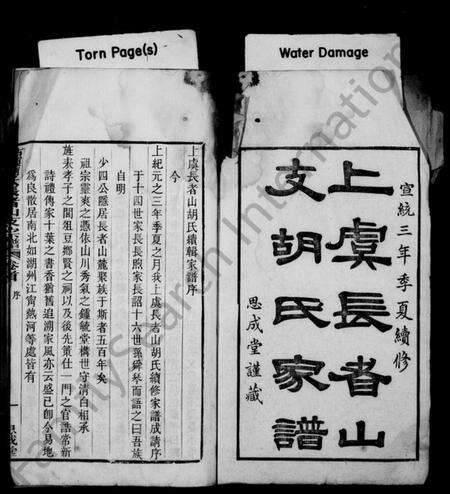 Torn Page(s)
Water Damage
宣統三年季夏續修
上虞長者山
支胡氏家譜
思成堂謹藏
上虞長者山胡氏續輯家譜序
今
上紀元之三年季夏之月我上虞長者山胡氏續修家譜成請序
于十四世家長長煦家長詔十六世孫舜琴而語之曰吾族
自明
少四公隱居長者山麓聚族于斯者五百年矣
祖宗靈爽之憑依山川秀氣之鍾毓堂構世守清白相承
旌表孝子之閭俎豆鄉賢之祠以及後先策仕一門之官誥常新
詩禮傳家十葉之書香猶舊追溯家風亦云盛已卽今易地
為良散居南北如湖州江甯熱河等處皆有
序
FamilySearch International